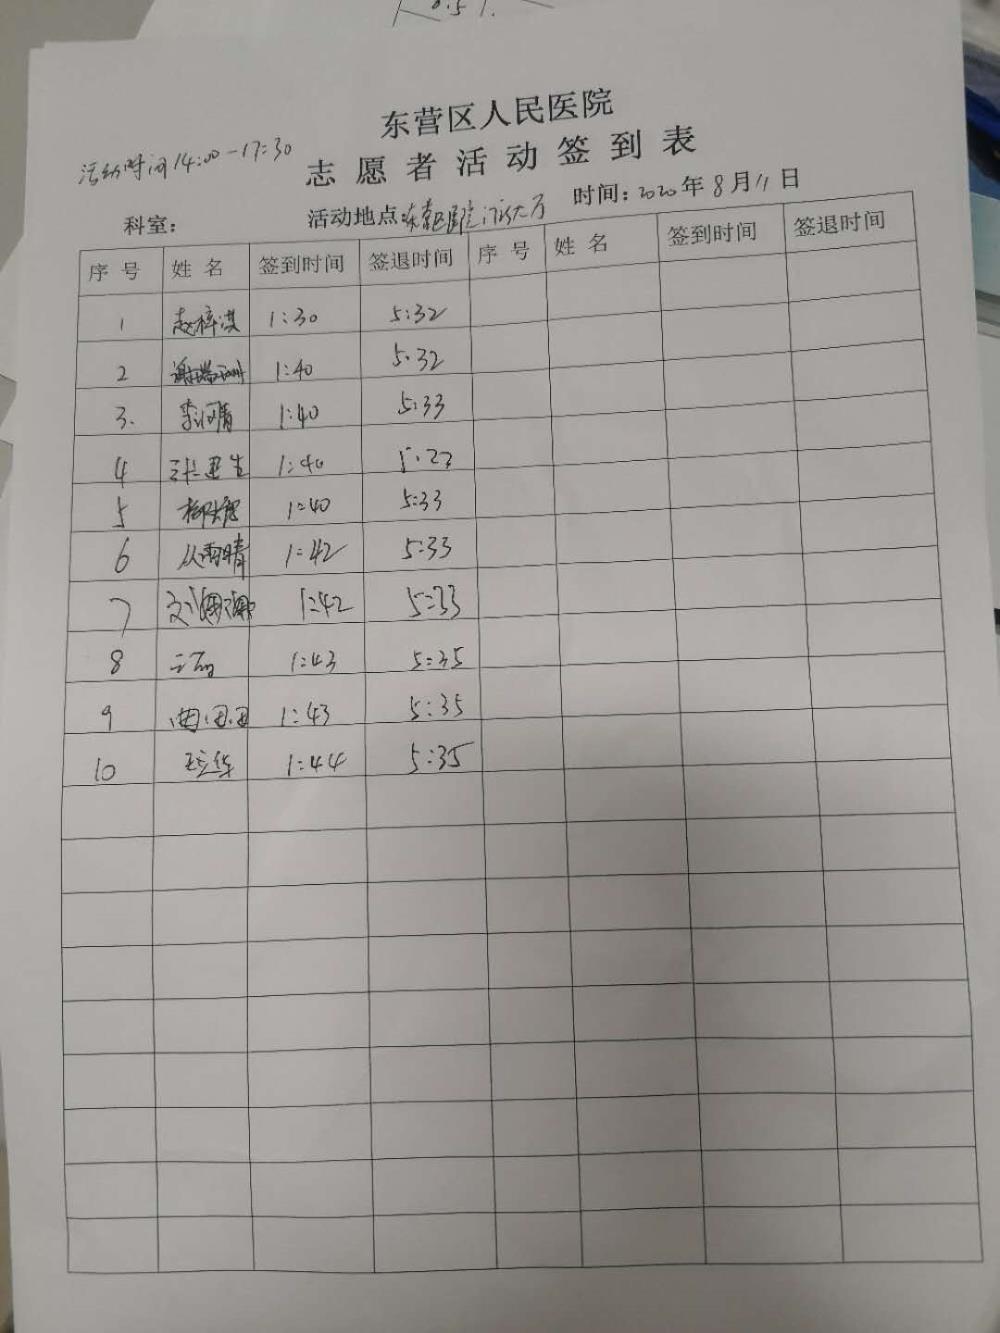 东营区人民医院
活动时间14:00-17:30
志愿者活动签到表
科室: 活动地点: 东营区医院门诊大厅 时间: 2020年8月11日
序号 姓名 签到时间 签退时间 序号 姓名 签到时间 签退时间
1 赵梓淇 1:30 5:32
2 1:40 5:32
3. 1:40 5:33
4 1:40
5 1:40 5:33
6 从雨晴 1:42 5:33
7 1:42 5:33
8 1:43 5:35
9 1:43 5:35
10 1:44 5:35